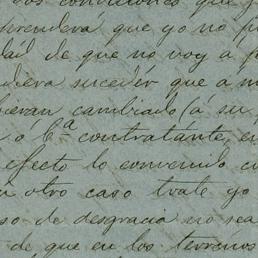 condiciones que
prenderá que yo no p
dad de que no voy a p
diera suceder que a m
bieran cambiado (á su
o, ó 6.ª contratante, en
efecto lo convenido c
n otro caso trate yo
so de desgracia no sea
de que en los terrenos